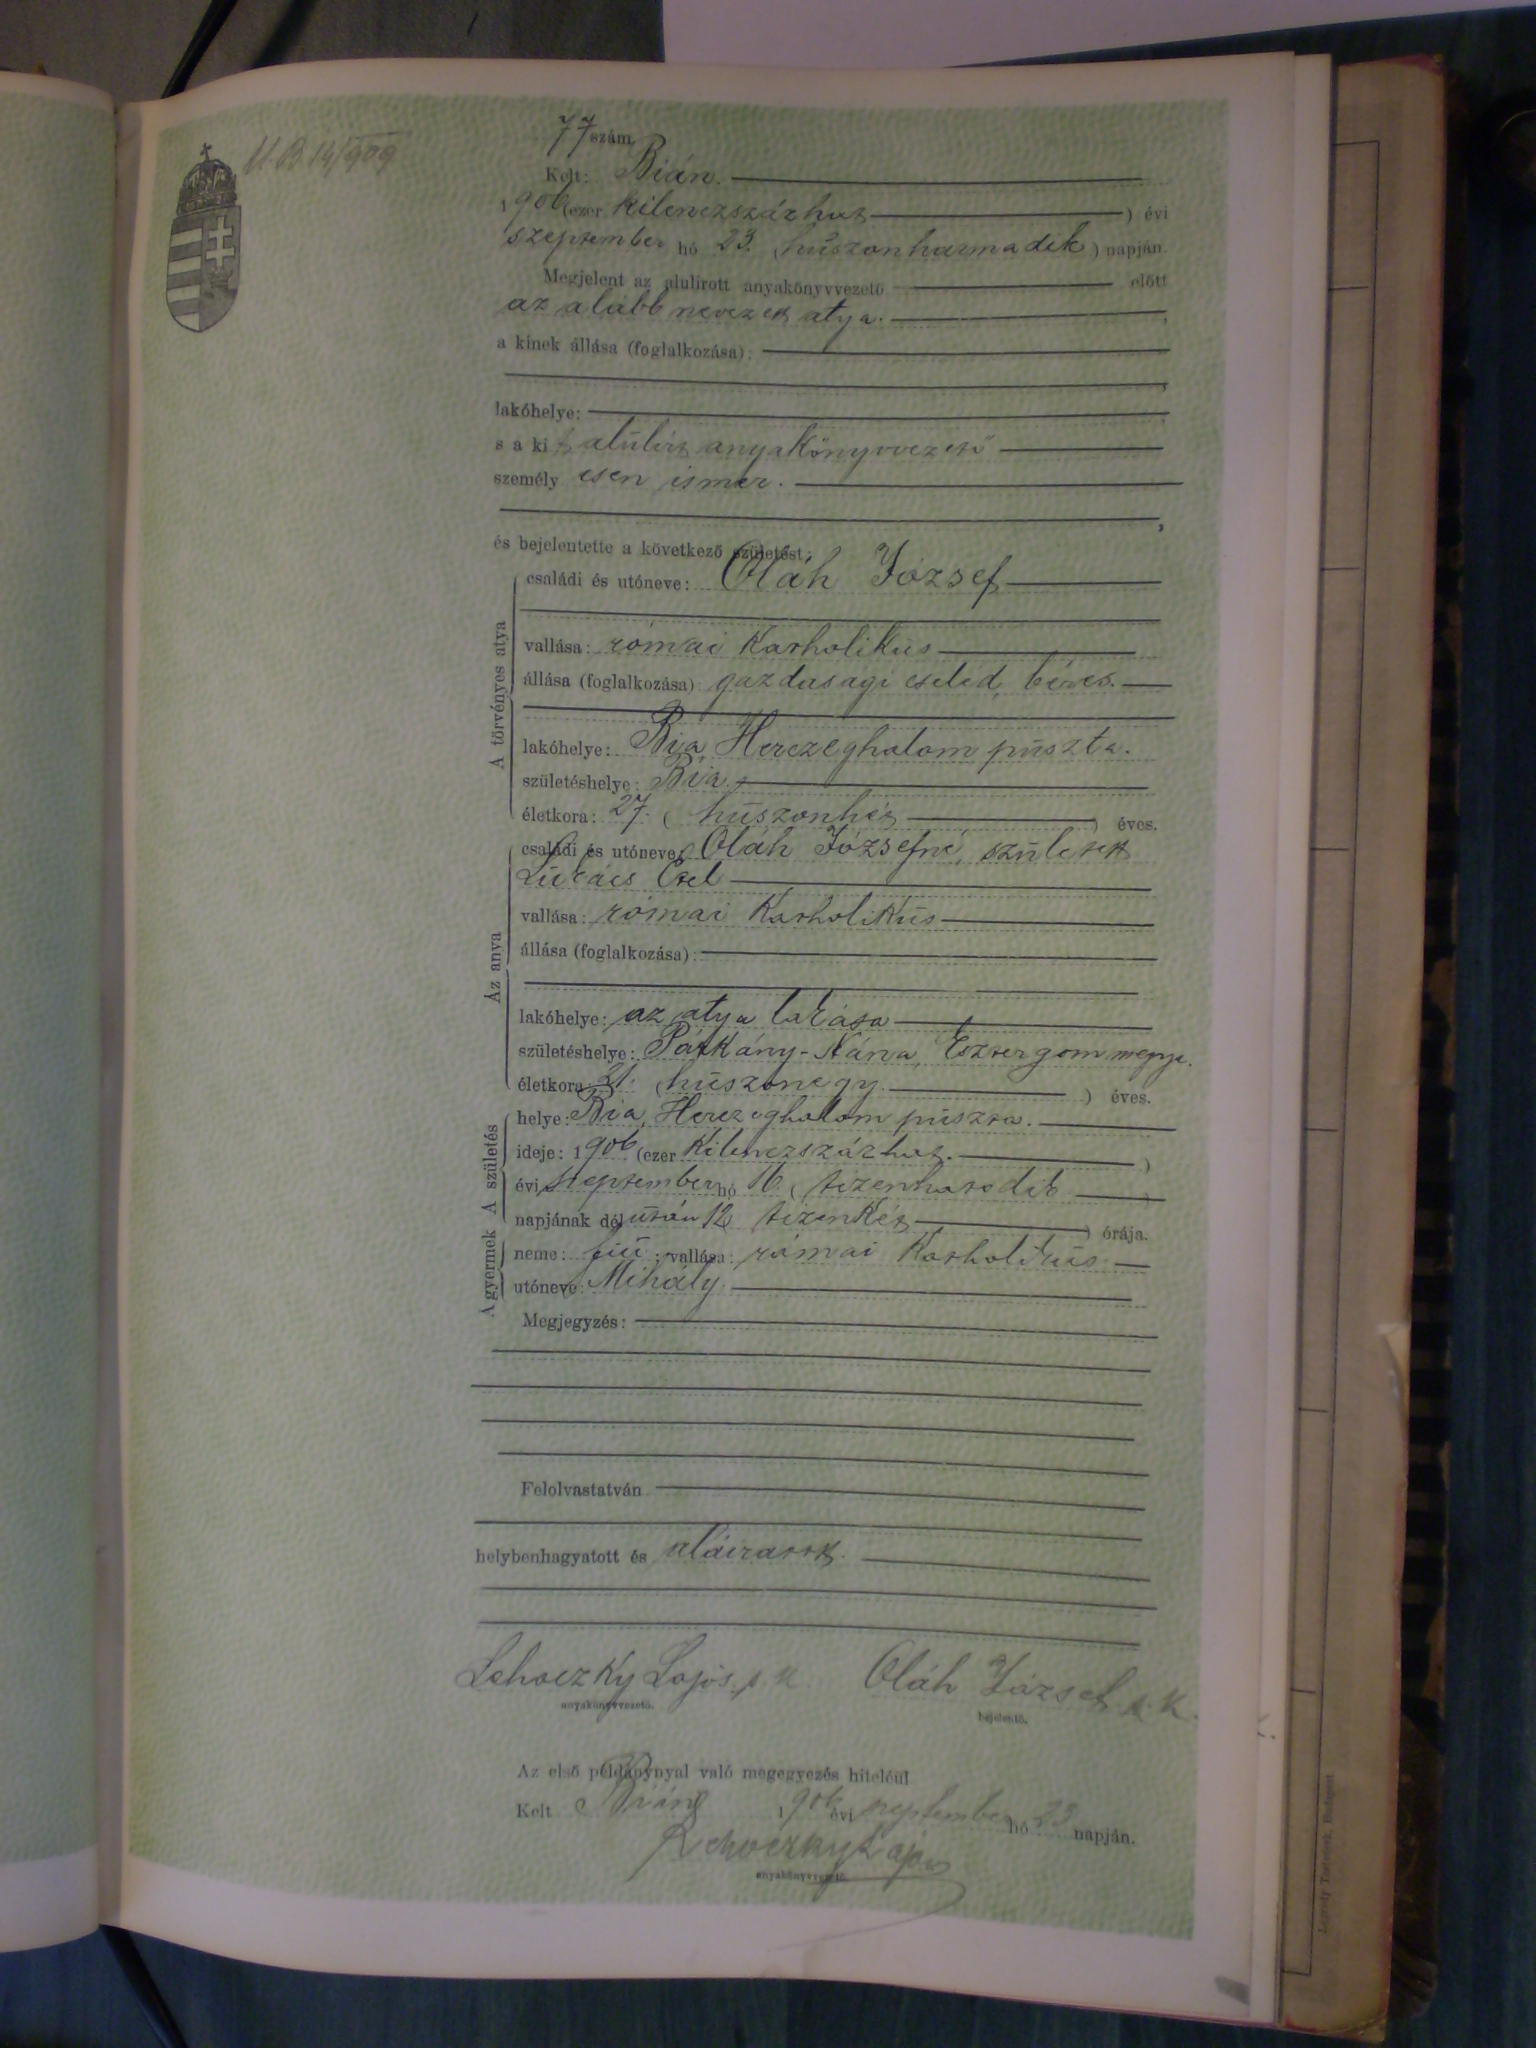 77 szám.
Kelt: Bián.
1906 (ezer kilenczszázhat) évi
szeptember hó 23. (húszonharmadik) napján.
Megjelent az alulirott anyakönyvvezető előtt
az alább nevezett atya.
a kinek állása (foglalkozása):
lakóhelye:
s a kit alulírt anyakönyvvezető
személyesen ismer.
és bejelentette a következő születést:
A törvényes atya
családi és utóneve: Oláh József
vallása: római katholikus
állása (foglalkozása) gazdasagi cseléd, béres.
lakóhelye: Bia, Herczeghalom púszta.
születéshelye: Bia
életkora: 27. (húszonhét) éves.
Az anya
családi és utóneve: Oláh Józsefné, született
Lukács Etel
vallása: római katholikus
állása (foglalkozása):
lakóhelye: az atya lakása
születéshelye: Párkány-Nána, Esztergom megye.
életkora: 21. (húszonegy.) éves.
A születés
helye: Bia, Herczeghalom púszta.
ideje: 1906. (ezer kilenczszázhat.)
évi szeptember hó 16 (tizenhatodik)
napjának délután 12 (tizenkét) órája.
A gyermek
neme: fiú; vallása: római katholikus.
utóneve: Mihály.
Megjegyzés:
Felolvastatván
helybenhagyatott és aláíratott.
Lehoczky Lajos s. k. Oláh József s. k.
anyakönyvvezető. bejelentő.
Az első példánynyal való megegyezés hiteléül
Kelt Bián 1906 évi szeptember hó 23 napján.
Lehoczky Lajos
anyakönyvvezető.